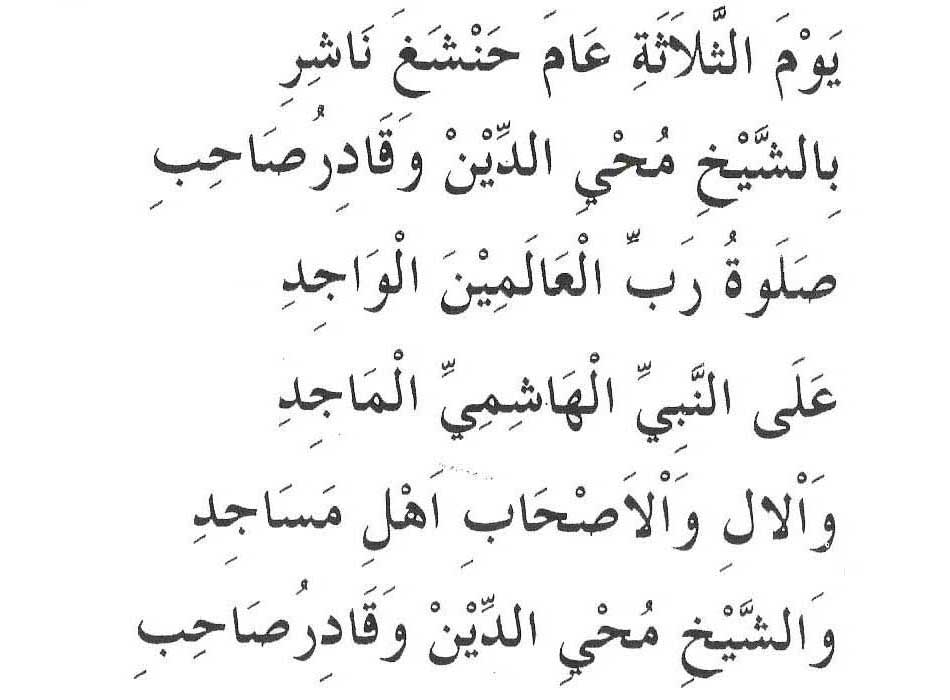 يَوْمَ الثَّلَاثَةِ عَامَ حَنْشَغَ نَاشِرِ
بِالشَّيْخِ مُحْيِ الدِّيْنْ وَقَادِرُ صَاحِبِ
صَلَوةُ رَبِّ الْعَالَمِيْنَ الْوَاجِدِ
عَلَى النَّبِيِّ الْهَاشِمِيِّ الْمَاجِدِ
وَاْلالِ وَاْلاَصْحَابِ اَهْلِ مَسَاجِدِ
وَالشَّيْخِ مُحْيِ الدِّيْنْ وَقَادِرُ صَاحِبِ